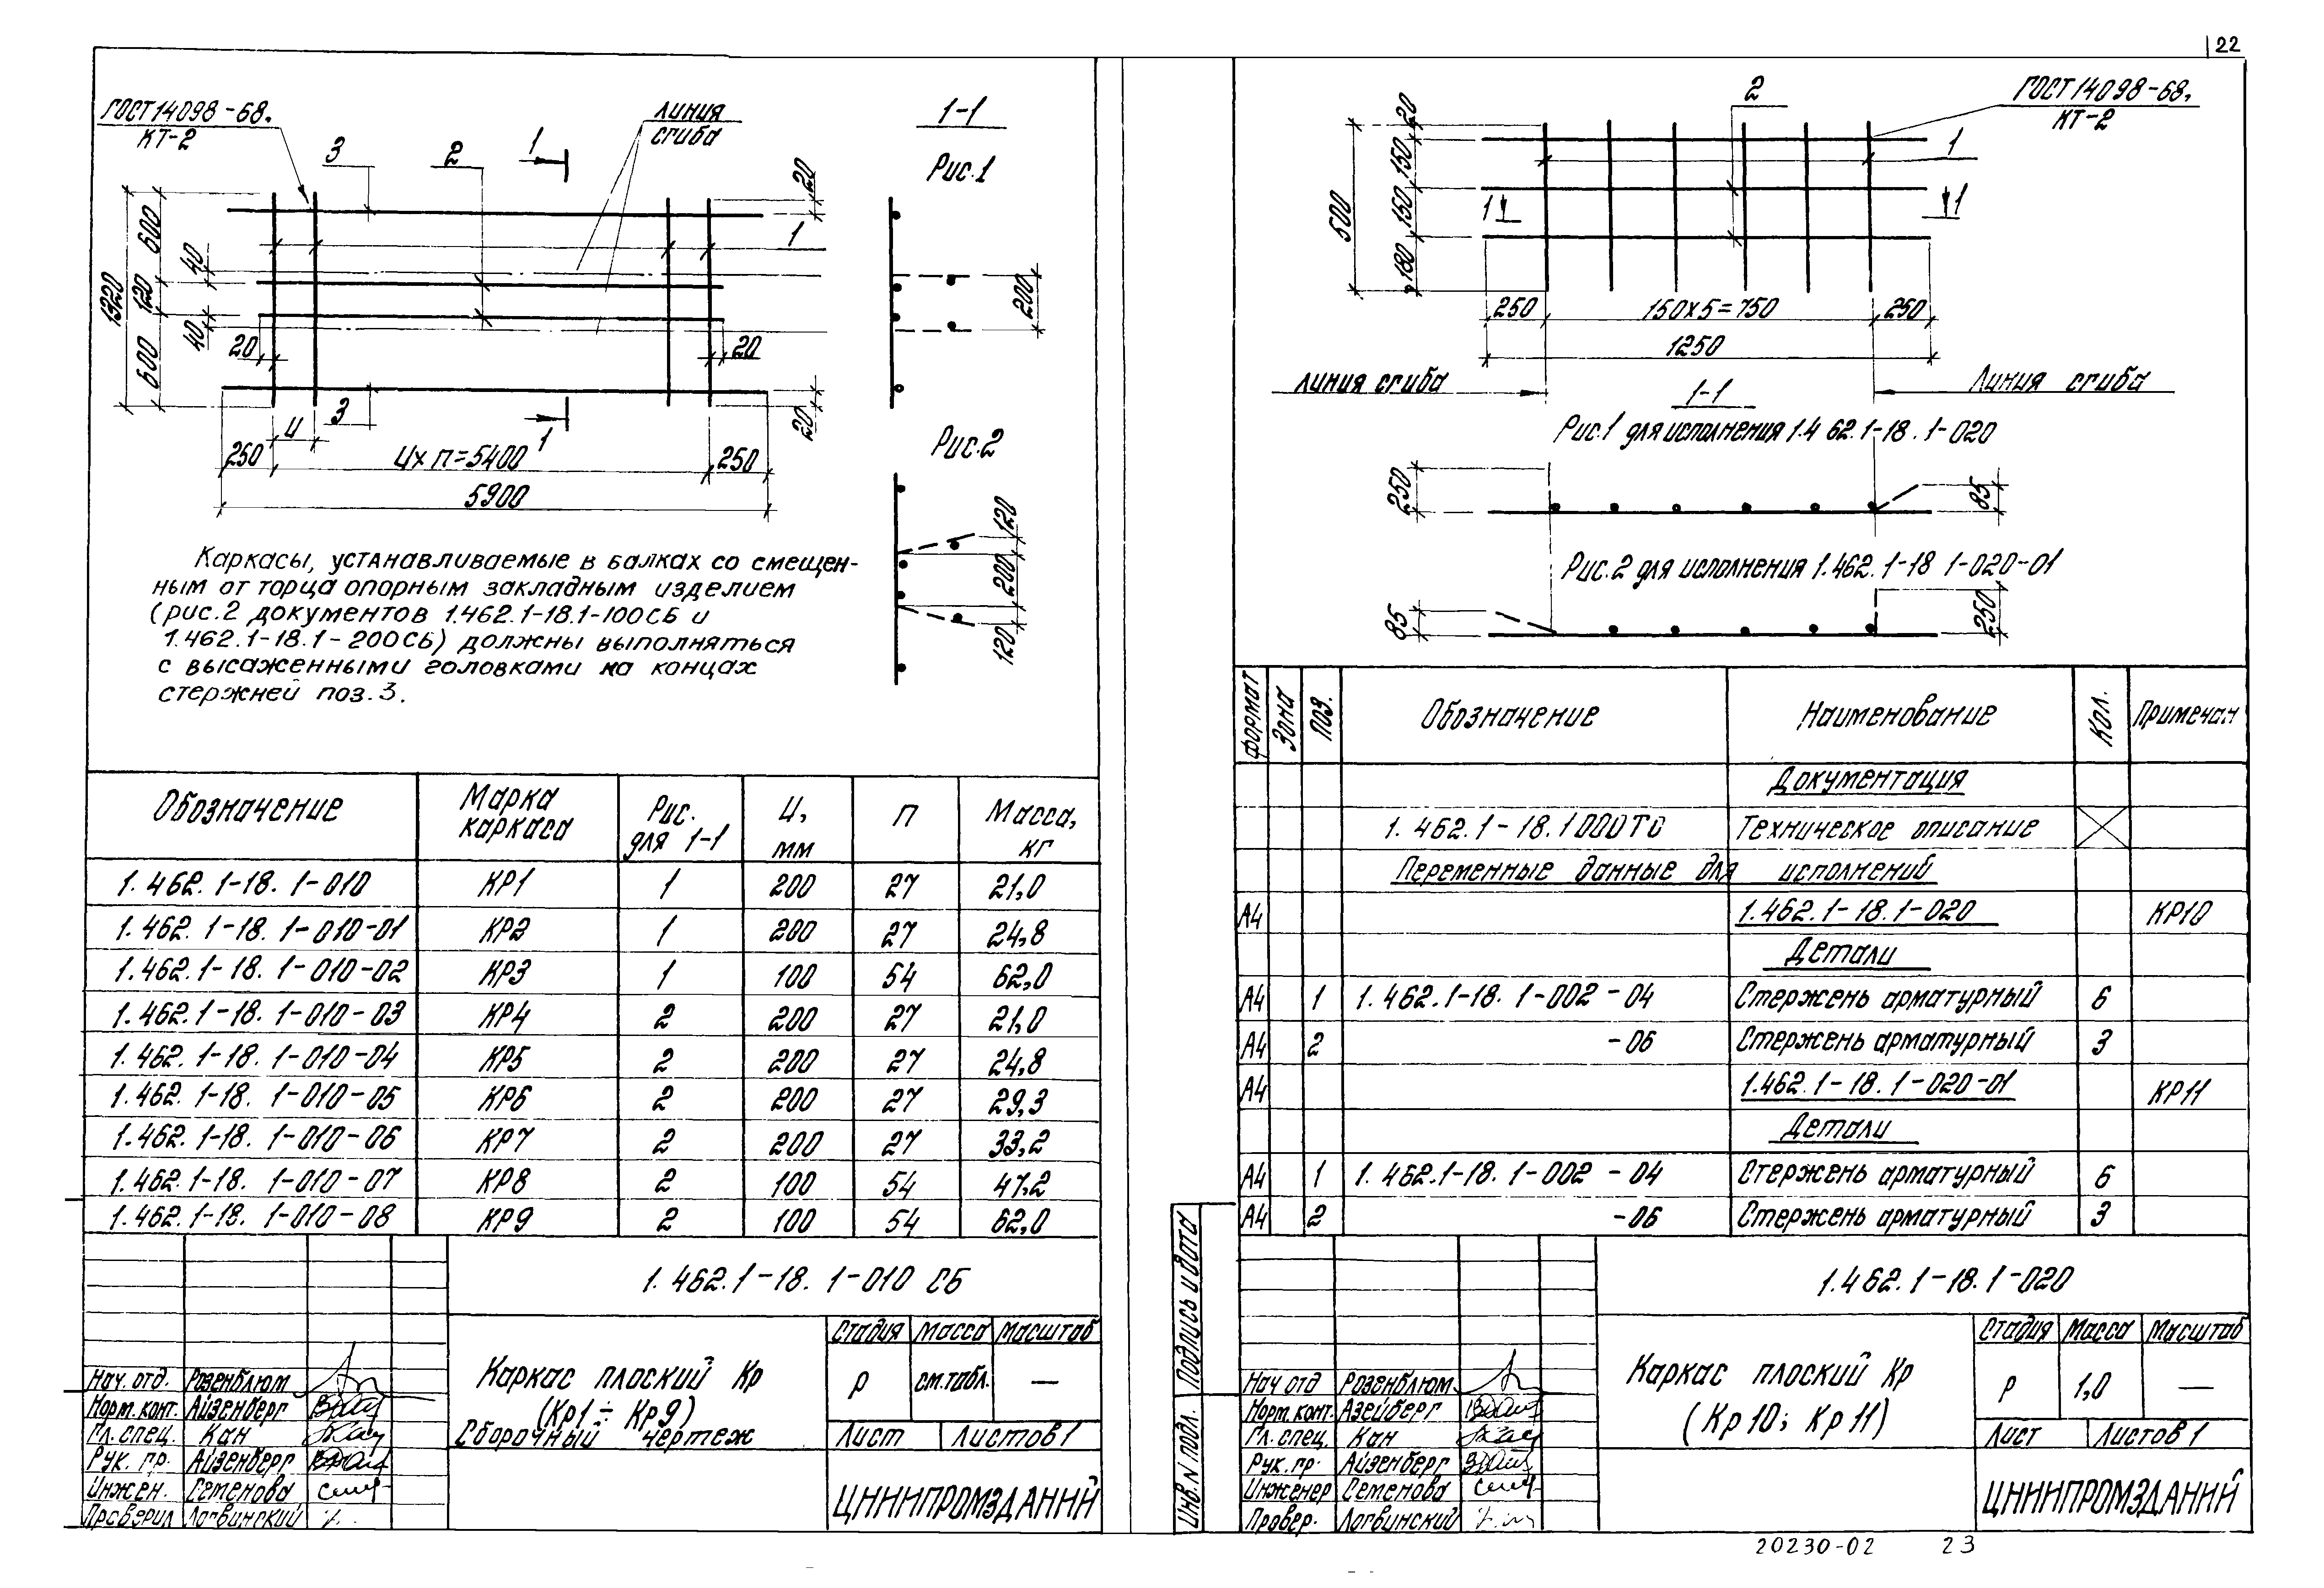 22
ГОСТ 14098-68.
КТ-2
линия
сгиба
1-1
Рис.1
3
2
1
1
20
600
40
1320
120
40
600
20
20
200
3
1
20
И
250
И х п = 5400
250
5900
Рис.2
120
200
120
Каркасы, устанавливаемые в балках со смещен-
ным от торца опорным закладным изделием
(рис.2 документов 1.462.1-18.1-100СБ и
1.462.1-18.1-200СБ) должны выполняться
с высаженными головками на концах
стержней поз.3.
Обозначение | Марка каркаса | Рис. для 1-1 | И, мм | п | Масса, кг
1.462.1-18.1-010 | КР1 | 1 | 200 | 27 | 21,0
1.462.1-18.1-010-01 | КР2 | 1 | 200 | 27 | 24,8
1.462.1-18.1-010-02 | КР3 | 1 | 100 | 54 | 62,0
1.462.1-18.1-010-03 | КР4 | 2 | 200 | 27 | 21,0
1.462.1-18.1-010-04 | КР5 | 2 | 200 | 27 | 24,8
1.462.1-18.1-010-05 | КР6 | 2 | 200 | 27 | 29,3
1.462.1-18.1-010-06 | КР7 | 2 | 200 | 27 | 33,2
1.462.1-18.1-010-07 | КР8 | 2 | 100 | 54 | 47,2
1.462.1-18.1-010-08 | КР9 | 2 | 100 | 54 | 62,0
1.462.1-18.1-010 СБ
Каркас плоский Кр
(Кр1 ÷ Кр9)
Сборочный чертеж
Стадия | Масса | Масштаб
р | см.табл. | —
Лист | Листов 1
ЦНИИПРОМЗДАНИЙ
Нач. отд. Розенблюм
Норм. конт. Айзенберг
Гл. спец. Кан
Рук. гр. Айзенберг
Инжен. Семенова
Проверил Логвинский
2
ГОСТ 14098-68,
КТ-2
1
20
150
150
180
500
1
1
250
150х5=750
250
1250
линия сгиба
Линия сгиба
1-1
Рис.1 для исполнения 1.462.1-18.1-020
250
85
Рис.2 для исполнения 1.462.1-18 1-020-01
85
250
Формат | Зона | Поз. | Обозначение | Наименование | Кол. | Примечан
Документация
1.462.1-18.1 000ТО | Техническое описание
Переменные данные для исполнений
А4 | 1.462.1-18.1-020 | КР10
Детали
А4 | 1 | 1.462.1-18.1-002-04 | Стержень арматурный | 6
А4 | 2 | -06 | Стержень арматурный | 3
А4 | 1.462.1-18.1-020-01 | КР11
Детали
А4 | 1 | 1.462.1-18.1-002-04 | Стержень арматурный | 6
А4 | 2 | -06 | Стержень арматурный | 3
Инв.N подл. Подпись и дата
1.462.1-18.1-020
Каркас плоский Кр
(Кр10; Кр11)
Стадия | Масса | Масштаб
р | 1,0 | —
Лист | Листов 1
ЦНИИПРОМЗДАНИЙ
Нач отд Розенблюм
Норм. конт. Азейберг
Гл. спец. Кан
Рук. гр. Айзенберг
Инженер Семенова
Провер. Логвинский
20230-02 23